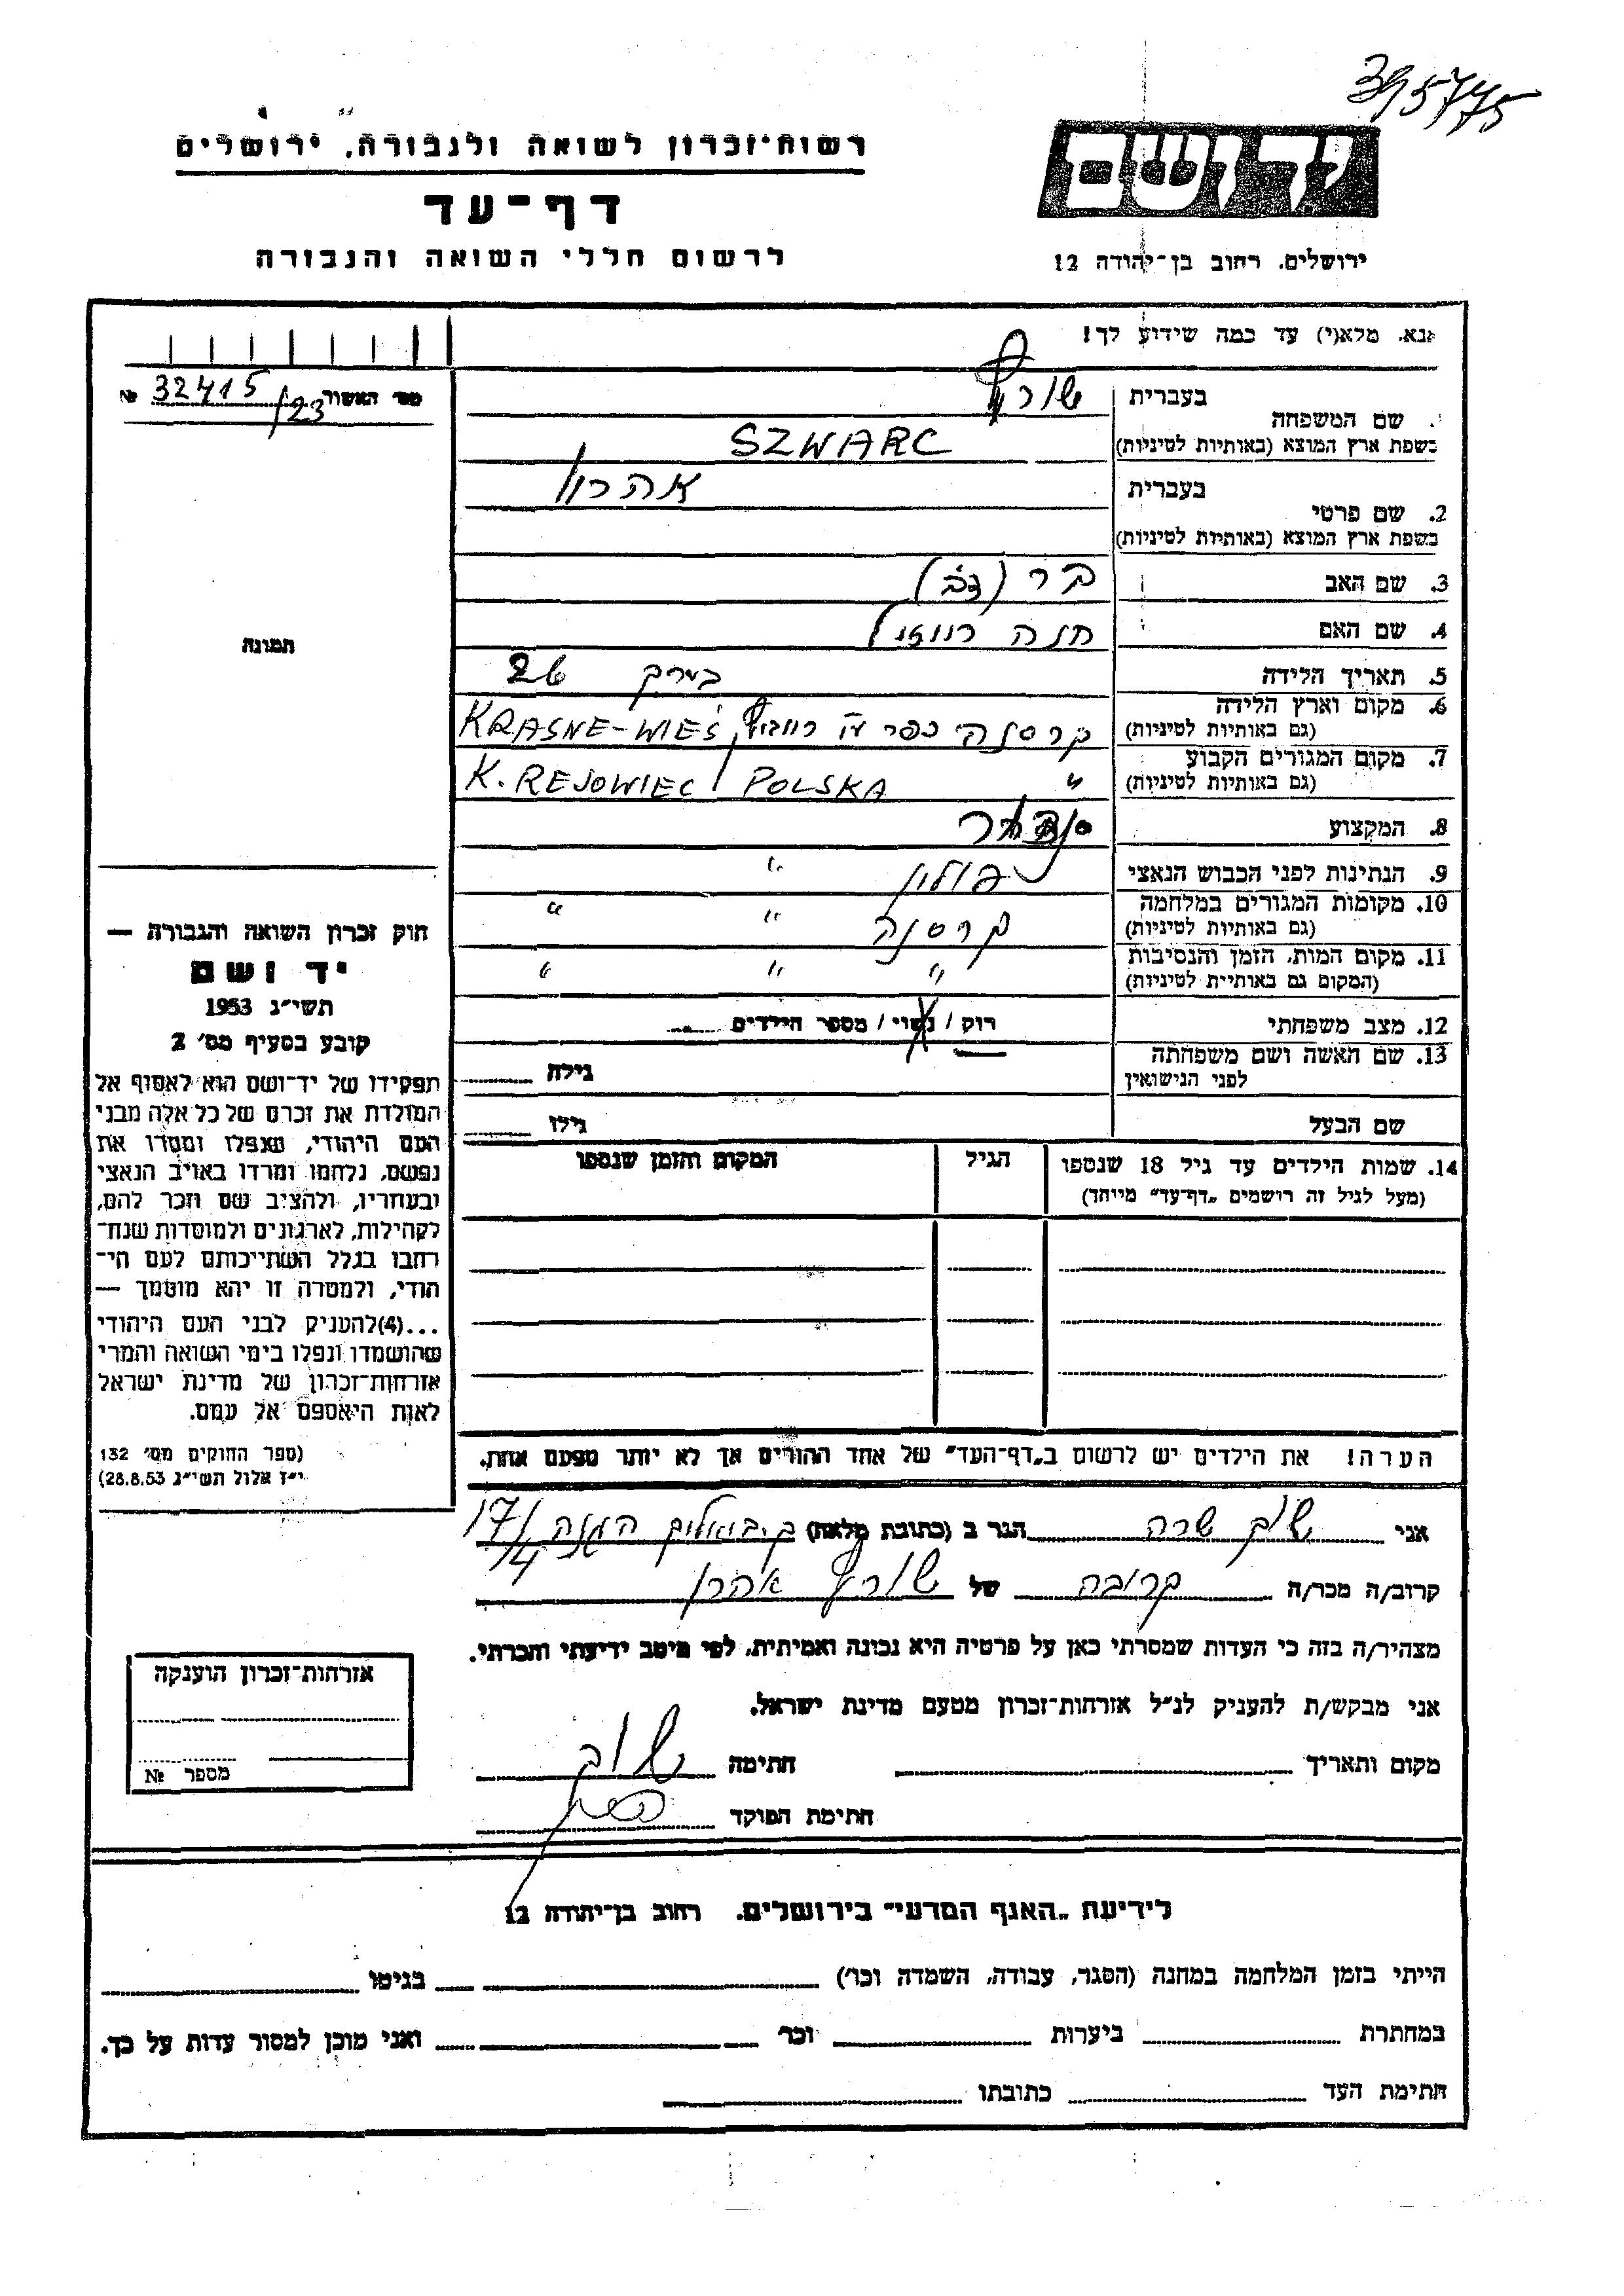 395775
רשות־זכרון לשואה ולגבורה, ירושלים
דף־עד
לרשום חללי השואה והגבורה
יד ושם
ירושלים, רחוב בן־יהודה 12
אנא, מלא(י) עד כמה שידוע לך!
מס׳ האשור 32415/23 №
בעברית
שם המשפחה
בשפת ארץ המוצא (באותיות לטיניות)
שורץ
SZWARC
בעברית
2. שם פרטי
בשפת ארץ המוצא (באותיות לטיניות)
אהרון
3. שם האב
בר (דב)
4. שם האם
חנה
5. תאריך הלידה
בערך 26
6. מקום וארץ הלידה
(גם באותיות לטיניות)
קרסנה כפר ע״י KRASNE-WIEŚ
7. מקום המגורים הקבוע
(גם באותיות לטיניות)
" K. REJOWIEC / POLSKA
8. המקצוע
9. הנתינות לפני הכבוש הנאצי
פולין "
10. מקומות המגורים במלחמה
(גם באותיות לטיניות)
קרסנה " "
11. מקום המות, הזמן והנסיבות
(המקום גם באותיות לטיניות)
" " "
12. מצב משפחתי
רוק / נשוי / מספר הילדים
13. שם האשה ושם משפחתה
לפני הנישואין
גילה
שם הבעל
גילו
14. שמות הילדים עד גיל 18 שנספו
(מעל לגיל זה רושמים „דף־עד״ מיוחד)
הגיל
המקום והזמן שנספו
הערה! את הילדים יש לרשום ב„דף־העד״ של אחד ההורים אך לא יותר מפעם אחת.
תמונה
חוק זכרון השואה והגבורה —
יד ושם
תשי״ג 1953
קובע בסעיף מס׳ 2
תפקידו של יד־ושם הוא לאסוף אל
המולדת את זכרם של כל אלה מבני
העם היהודי, שנפלו ומסרו את
נפשם, נלחמו ומרדו באויב הנאצי
ובעוזריו, ולהציב שם וזכר להם,
לקהילות, לארגונים ולמוסדות שנח־
רחבו בגלל השתייכותם לעם הי־
הודי, ולמטרה זו יהא מוסמך —
...(4)להעניק לבני העם היהודי
שהושמדו ונפלו בימי השואה והמרי
אזרחות־זכרון של מדינת ישראל
לאות היאספם אל עמם.
(ספר החוקים מס׳ 132
י״ז אלול תשי״ג 28.8.53)
אני שוב שרה הגר ב (כתובת מלאה) ק. ביאליק ההגנה 17/4
קרוב/ה מכר/ה קרובה של שורץ אהרן
מצהיר/ה בזה כי העדות שמסרתי כאן על פרטיה היא נכונה ואמיתית, לפי מיטב ידיעתי והכרתי.
אני מבקש/ת להעניק לנ״ל אזרחות־זכרון מטעם מדינת ישראל.
מקום ותאריך חתימה שוב
חתימת הפוקד
אזרחות־זכרון הוענקה
מספר №
לידיעת „האגף המדעי״ בירושלים, רחוב בן־יהודה 12
הייתי בזמן המלחמה במחנה (הסגר, עבודה, השמדה וכו׳) בגיטו
במחתרת ביערות וכו׳ ואני מוכן למסור עדות על כך.
חתימת העד כתובתו